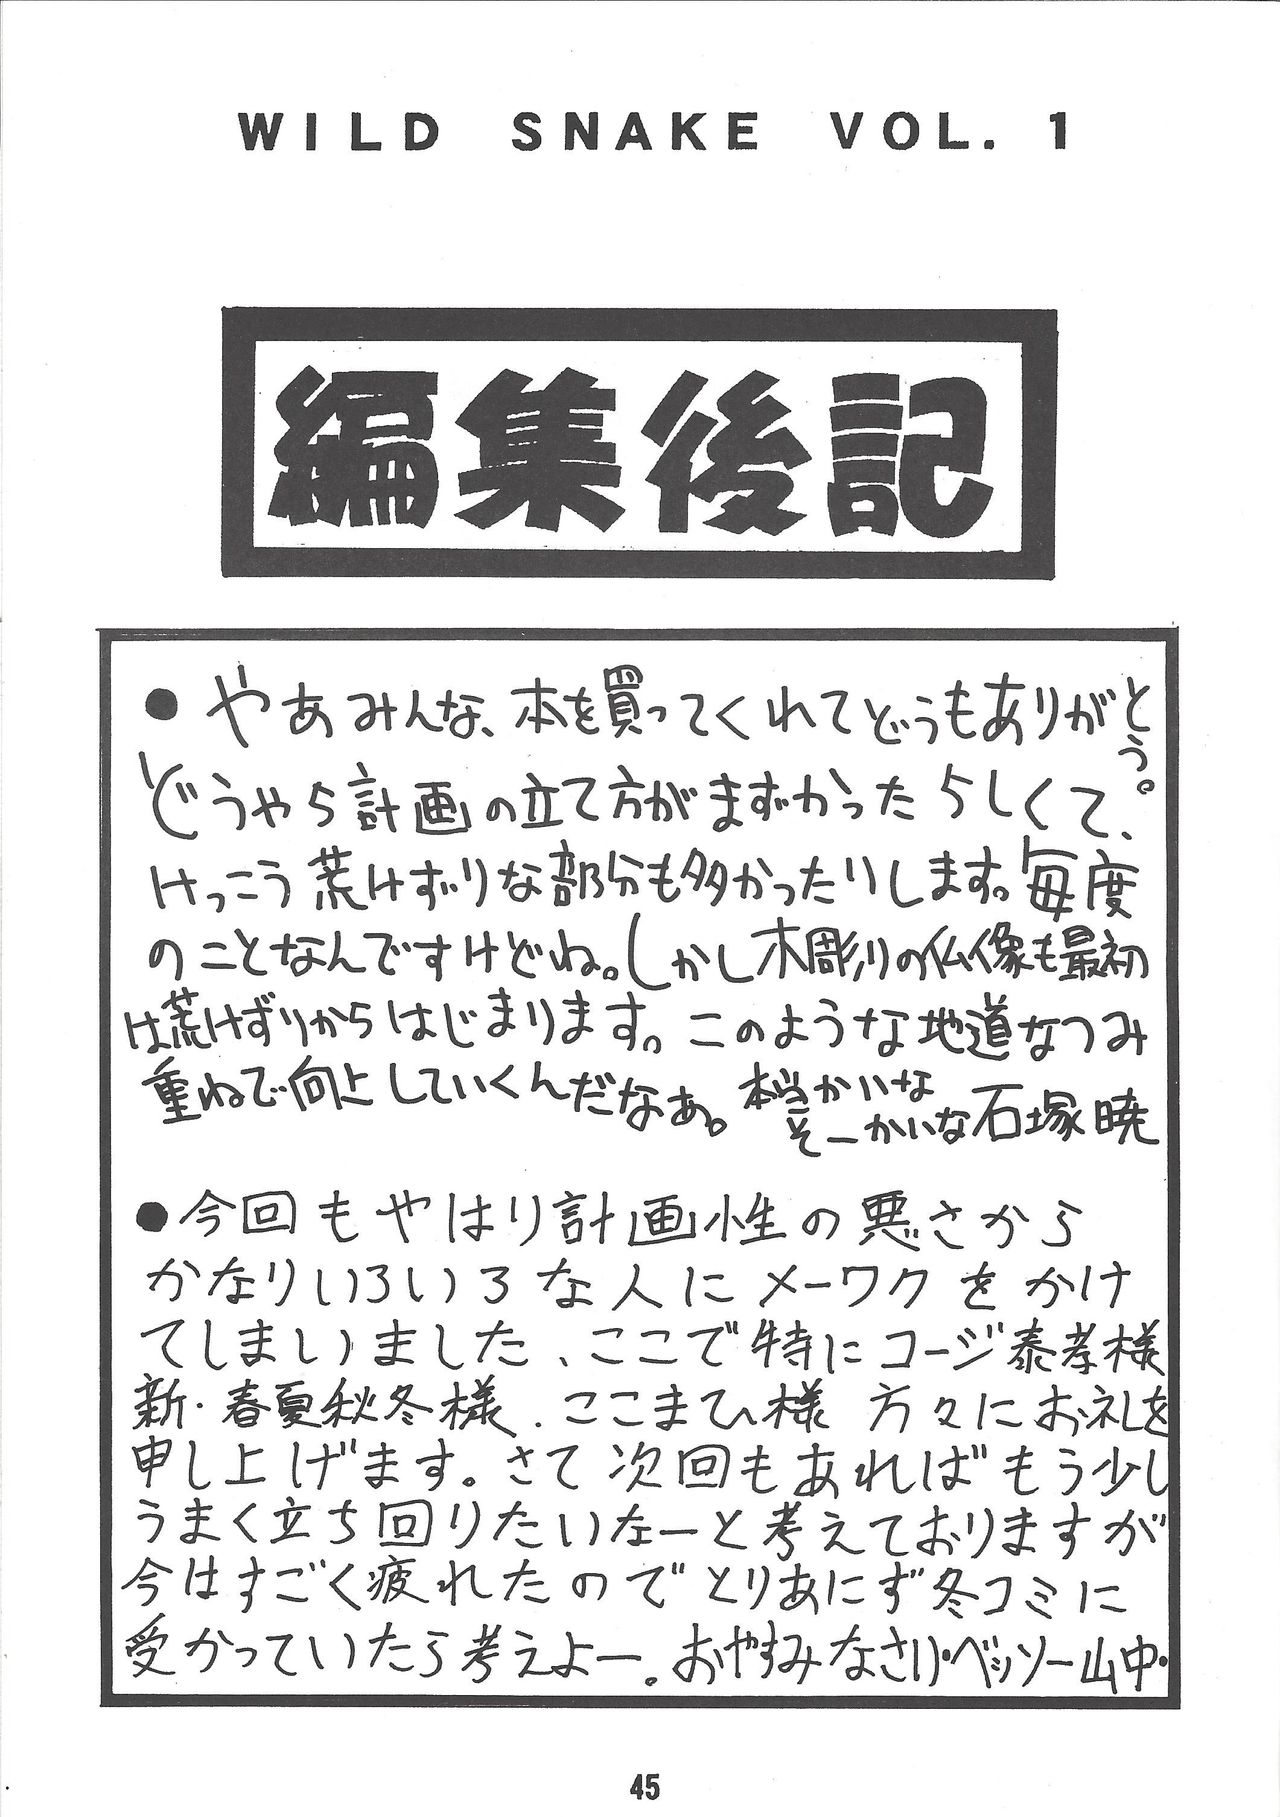 WILD SNAKE VOL. 1
編集後記
●やあみんな、本を買ってくれてどうもありがとう。
どうやら計画の立て方がまずかったらしくて、
けっこう荒けずりな部分も多かったりします。毎度
のことなんですけどね。しかし木彫りの仏像も最初
は荒けずりからはじまります。このような地道なつみ
重ねで向上していくんだなぁ。本当かいな
そーかいな 石塚暁
●今回もやはり計画性の悪さから
かなりいろいろな人にメーワクをかけ
てしまいました、ここで特にコージ泰孝様
新・春夏秋冬様、ここまひ様 方々にお礼を
申し上げます。さて次回もあればもう少し
うまく立ち回りたいなーと考えておりますが
今はすごく疲れたのでとりあえず冬コミに
受かっていたら考えよー。おやすみなさい・ベッソー山中・
45